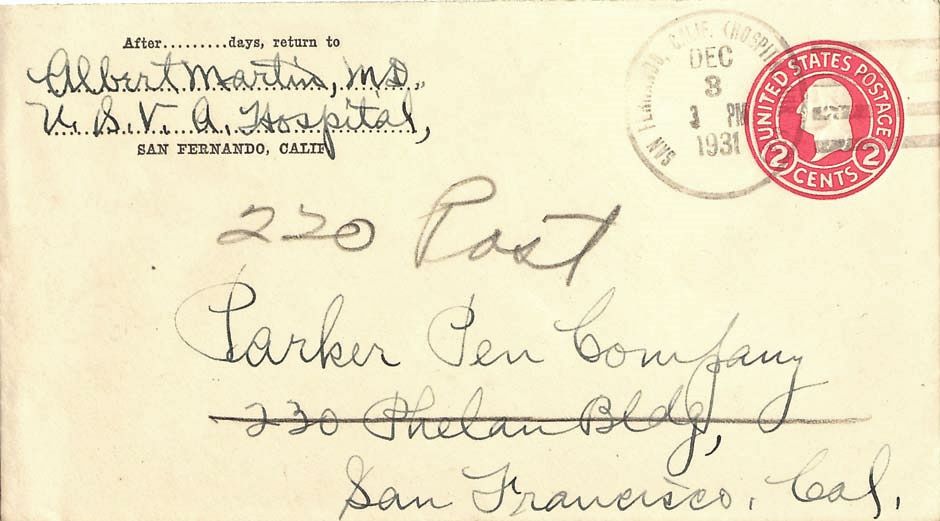 After.........days, return to
Albert Martin, M.D.,
U. S. V. A. Hospital,
SAN FERNANDO, CALIF
SAN FERNANDO, CALIF. (HOSPI
DEC
3
PM
1931
UNITED STATES POSTAGE
2 CENTS 2
220 Post
Parker Pen Company
230 Phelan Bldg,
San Francisco, Cal.